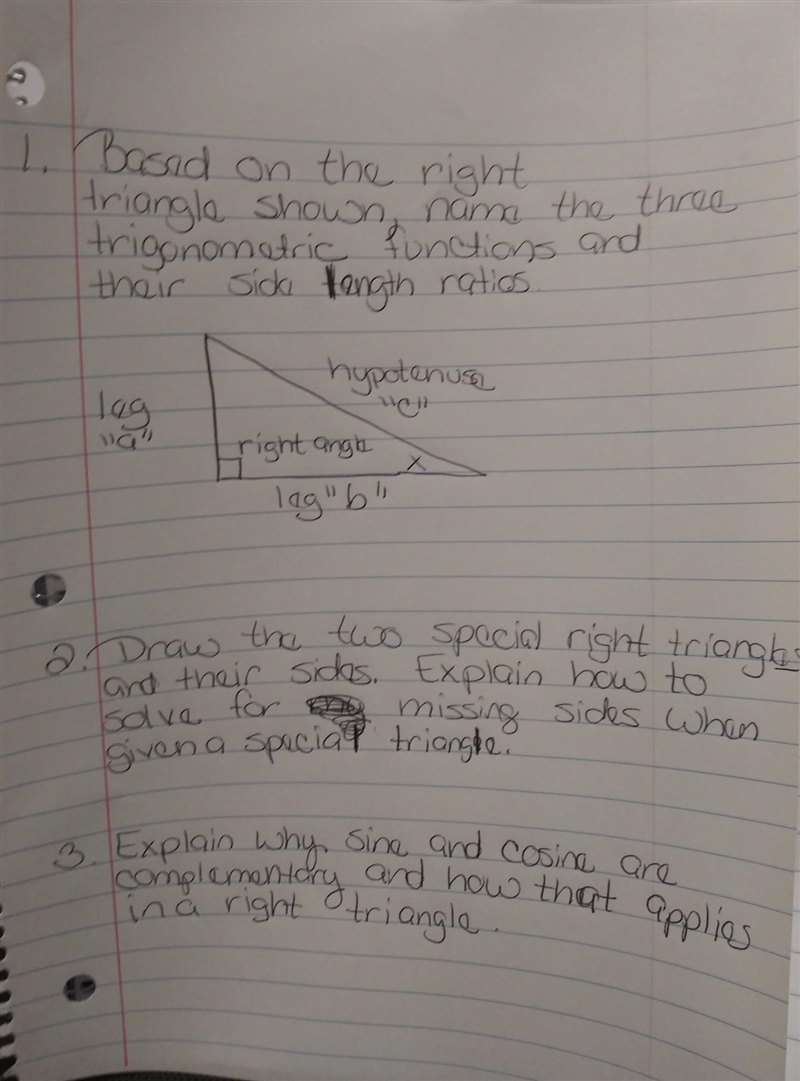 1. Based on the right
triangle shown, name the three
trigonometric functions and
their side length ratios.
hypotenuse
"c"
leg
"a"
right angle
x
leg "b"
2. Draw the two special right triangles
and their sides. Explain how to
solve for missing sides when
given a special triangle.
3. Explain why sine and cosine are
complementary and how that applies
in a right triangle.